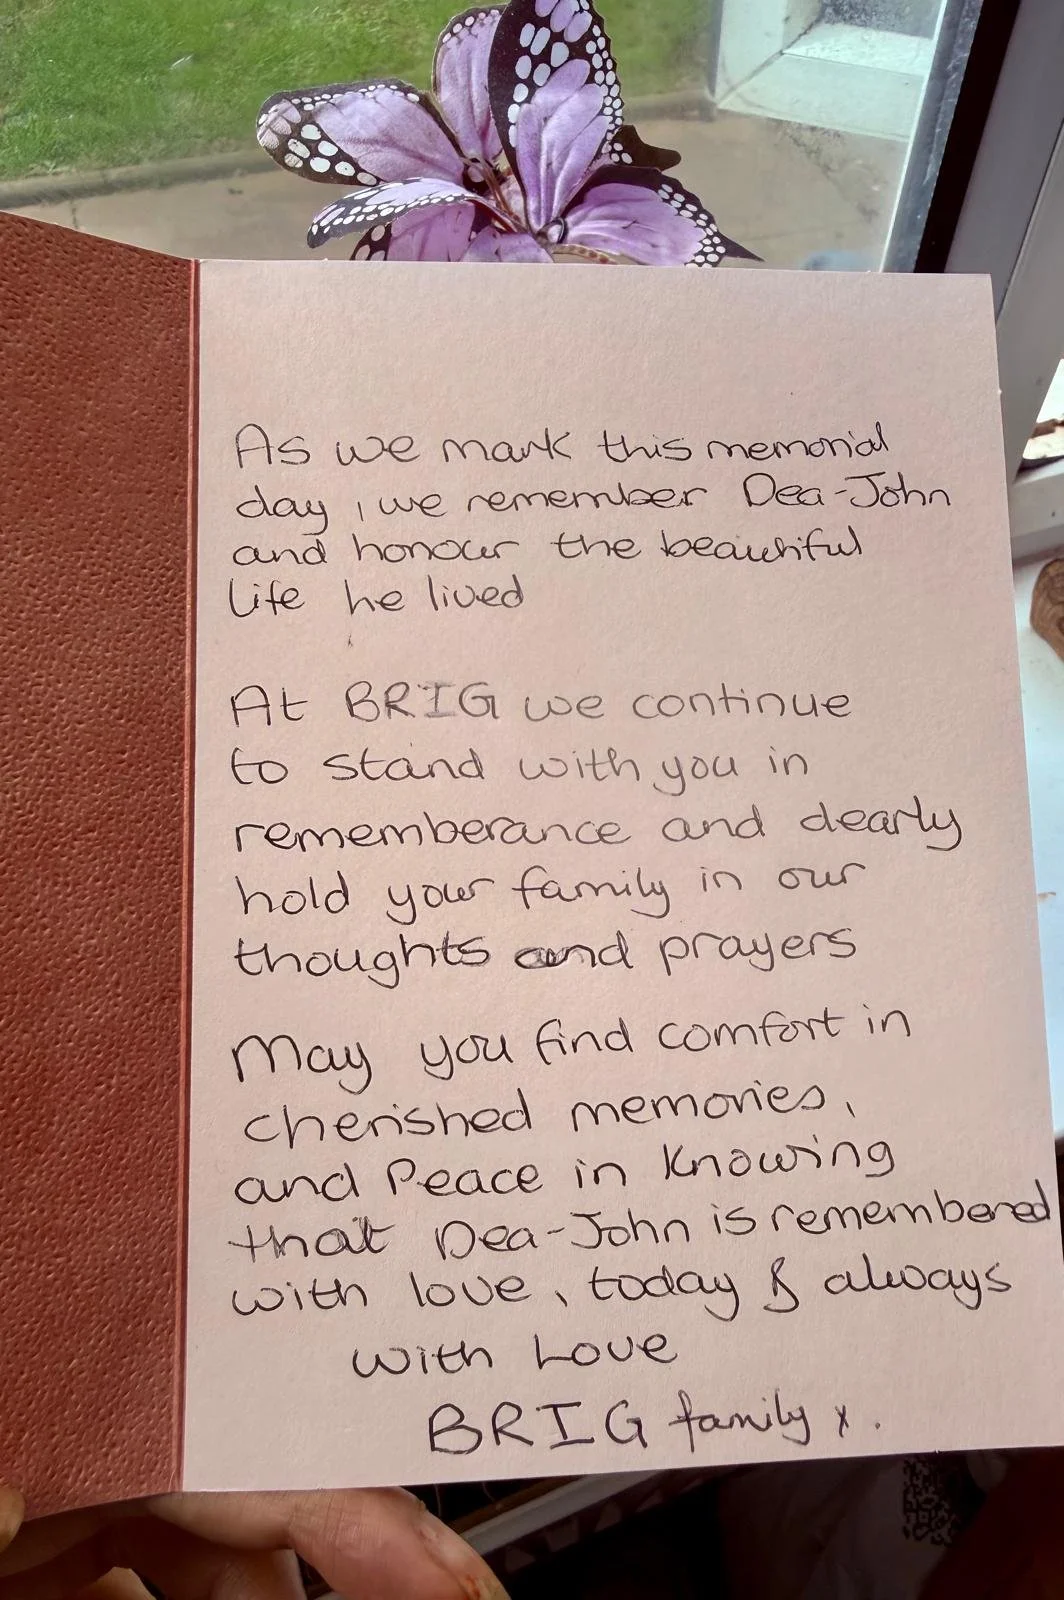 As we mark this memorial
day, we remember Dea-John
and honour the beautiful
life he lived
At BRIG we continue
to stand with you in
rememberance and dearly
hold your family in our
thoughts and prayers
May you find comfort in
cherished memories,
and Peace in Knowing
that Dea-John is remembered
with love, today & always
with Love
BRIG family x.